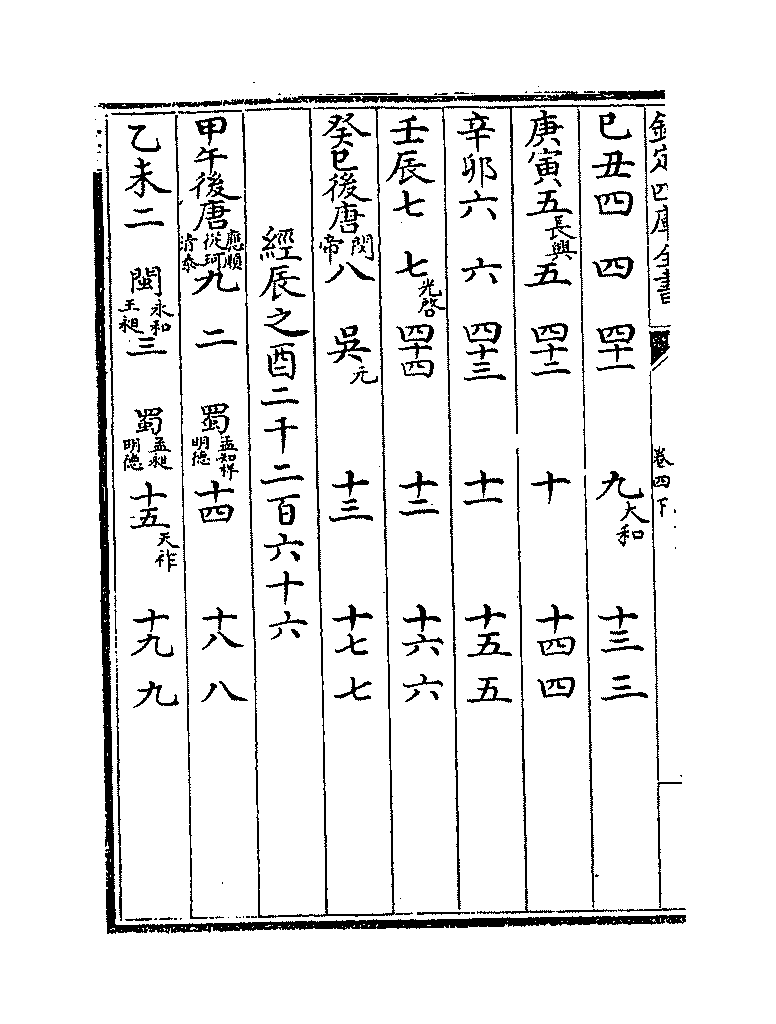 欽定四庫全書 卷四下
己丑四 四 四十一 九大和 十三 三
庚寅五長興 五 四十二 十 十四 四
辛卯六 六 四十三 十一 十五 五
壬辰七 七光啓 四十四 十二 十六 六
癸巳後唐閔帝 八 吳元 十三 十七 七
經辰之酉二千二百六十六
甲午後唐應順從珂清泰 九 二 蜀孟知祥明德 十四 十八 八
乙未二 閩永和王昶 三 蜀孟昶明德 十五天祚 十九 九